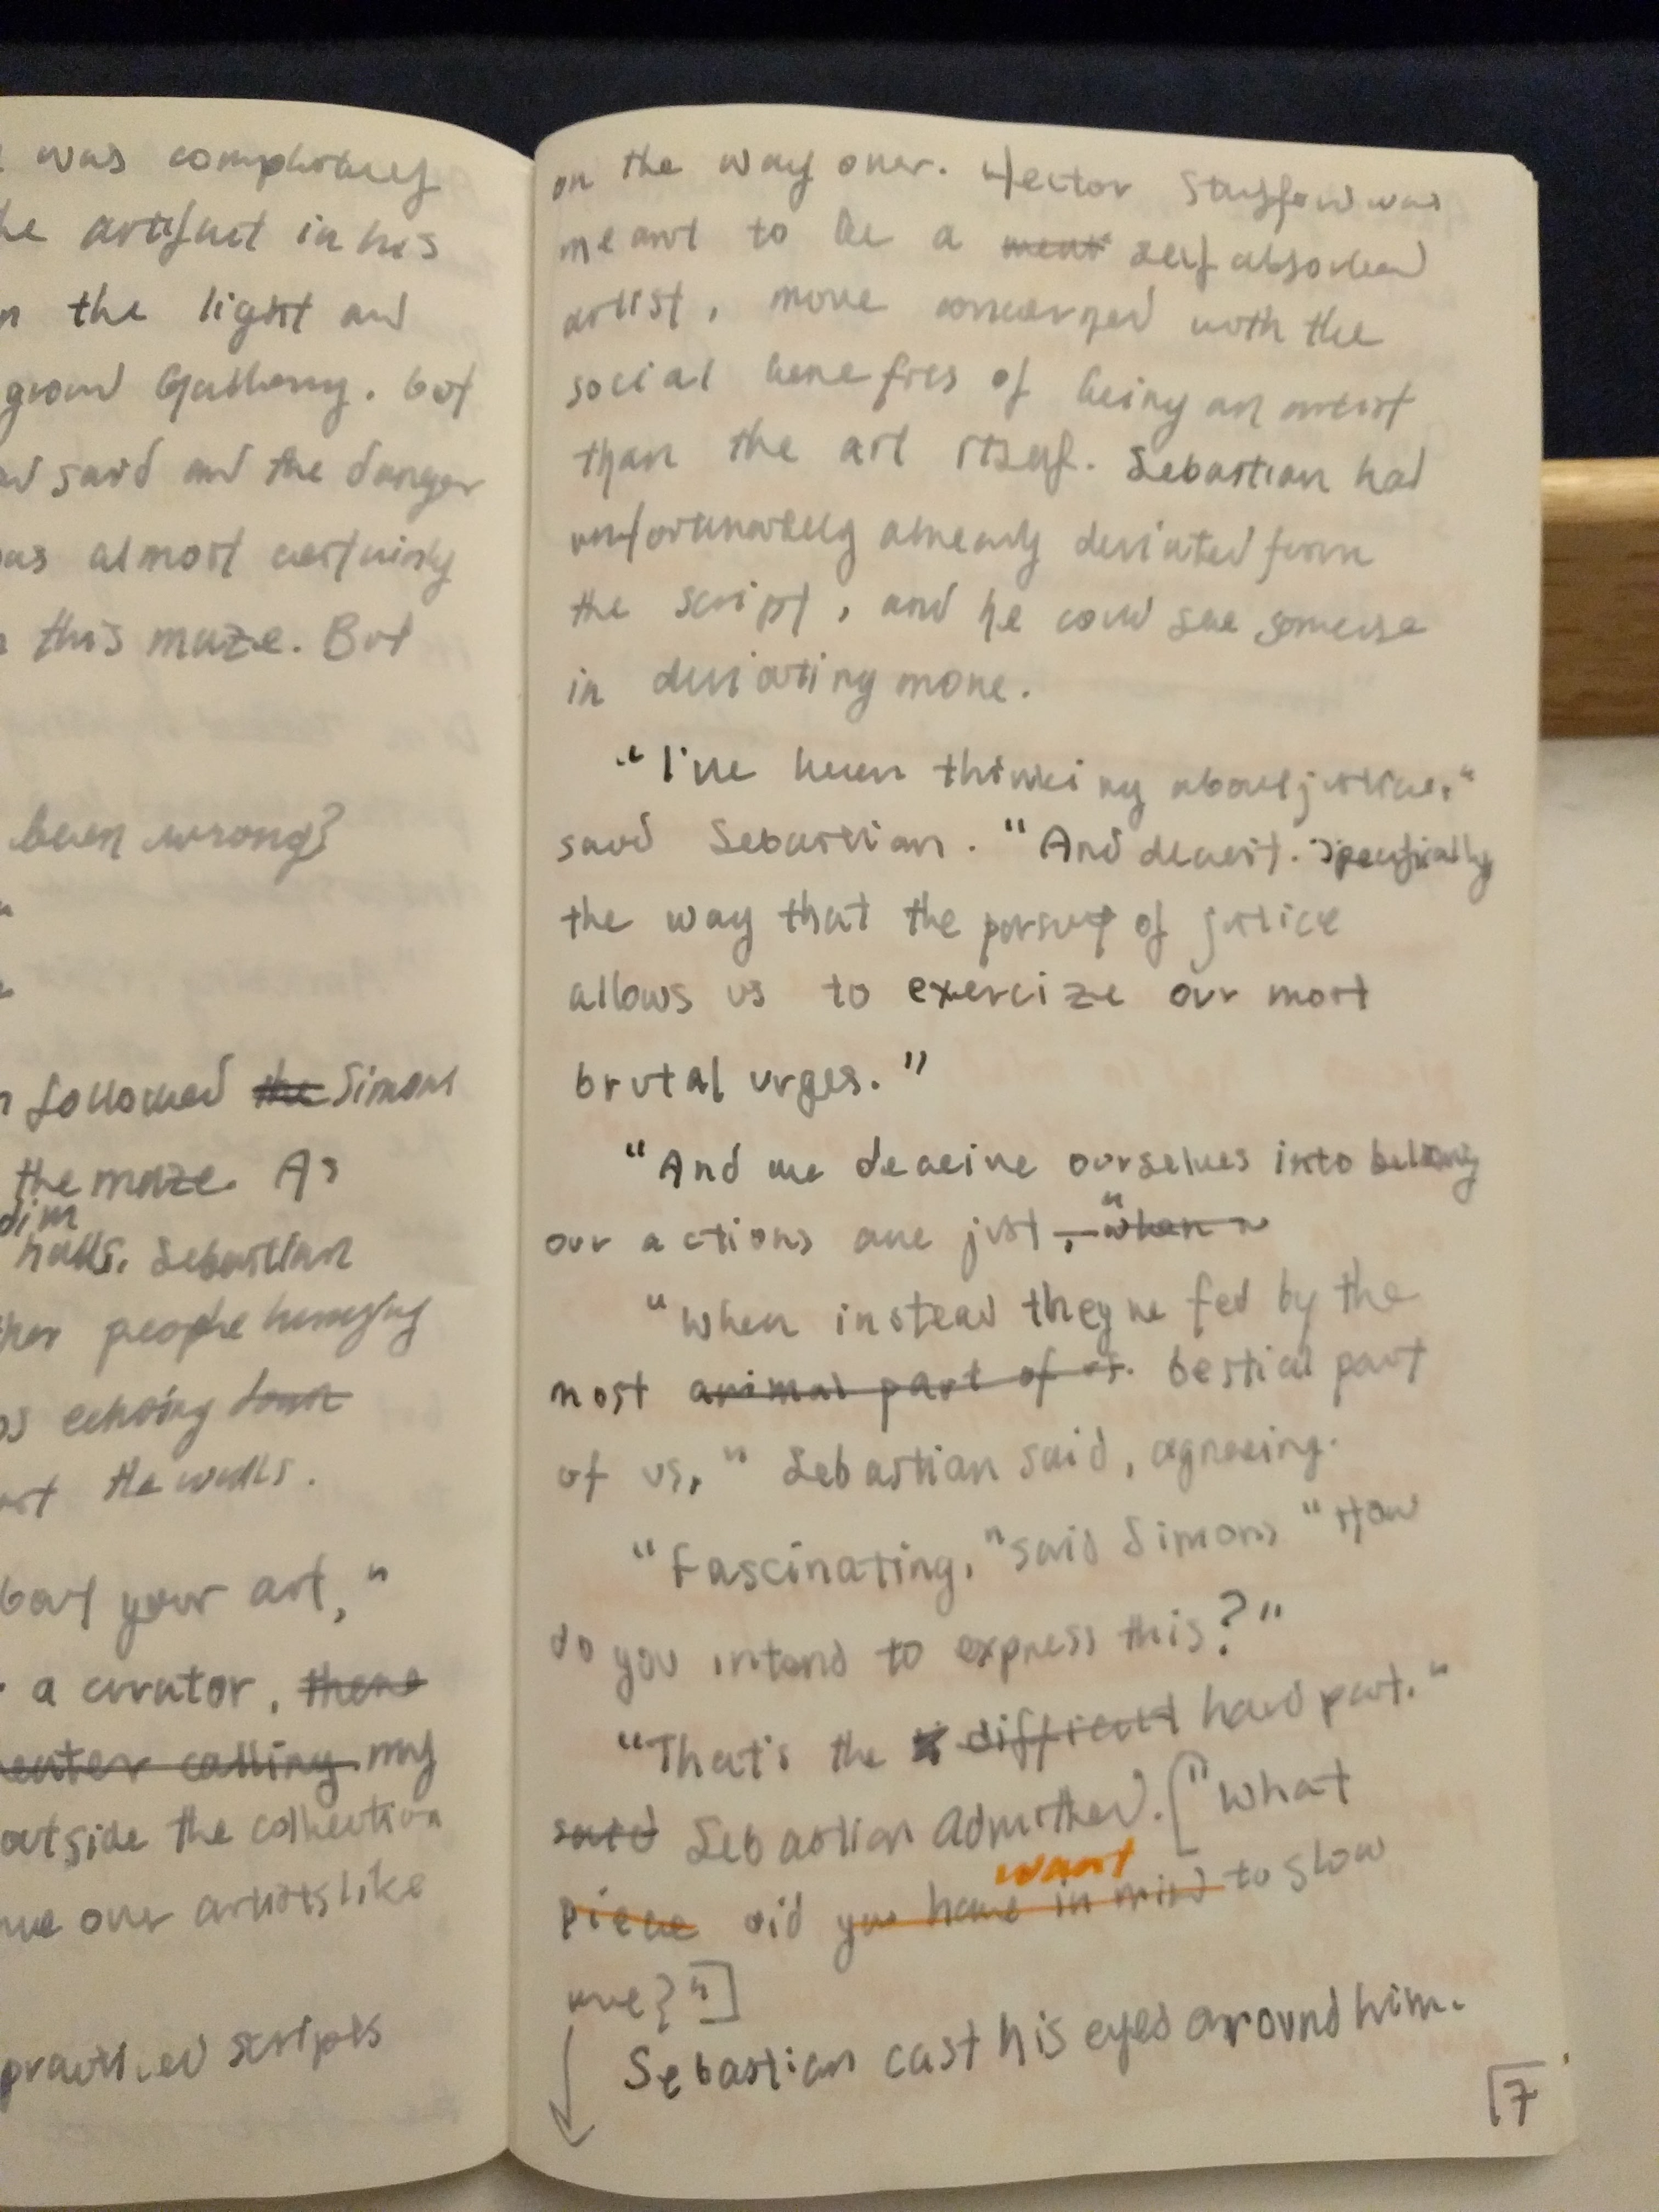 was completely
he artifact in his
n the light and
grand Gallery. but
said and the danger
as almost certainly
this maze. But
been wrong?
followed the Simons
the maze. As
dim
halls, Sebastian
people
echoing
the walls.
bout your art,"
a curator, there
calling my
outside the collection
over artists like
practiced scripts
on the way over. Hector was
meant to be a meat self absorbed
artist, more concerned with the
social benefits of being an artist
than the art itself. Sebastian had
unfortunately already deviated from
the script, and he could see
in deviating more.
"I've been thinking about justice,"
said Sebastian. "And deceit. Specifically
the way that the of justice
allows us to exercize our most
brutal urges."
"And we deceive ourselves into
our actions are just, " when
"When instead they're fed by the
most animal part of us. bestial part
of us," Sebastian said, agreeing.
"Fascinating," said Simons "How
do you intend to express this?"
"That's the difficult hard part."
said Sebastian admitted. ["What
want
piece did you have in mind to show
me?"]
Sebastian cast his eyes around him.
17